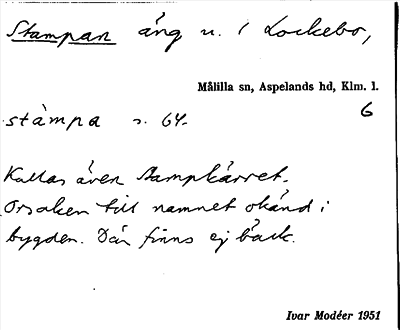 Stampan äng n. 1 Lockebo,
Målilla sn, Aspelands hd, Klm. l.
6
stàmpa s. 64.
Kallas även Stampkärret.
Orsaken till namnet okänd i
bygden. Där finns ej bäck.
Ivar Modéer 1951